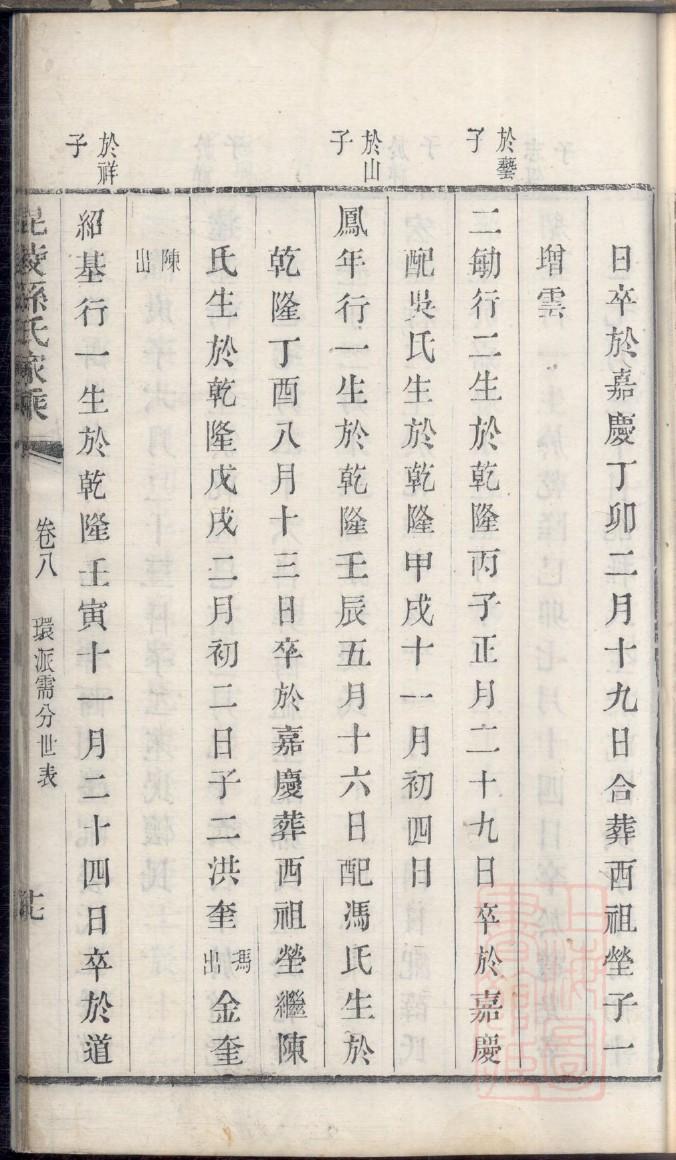 日卒於嘉慶丁卯二月十九日合葬西祖塋子一
增雲
於藝子
二勄行二生於乾隆丙子正月二十九日卒於嘉慶
配吳氏生於乾隆甲戌十一月初四日
於山子
鳳年行一生於乾隆壬辰五月十六日配馮氏生於
乾隆丁酉八月十三日卒於嘉慶葬西祖塋繼陳
氏生於乾隆戊戌二月初二日子二洪奎馮出金奎
陳出
於祥子
紹基行一生於乾隆壬寅十一月二十四日卒於道
毘陵孫氏家乘
卷八 環派需分世表